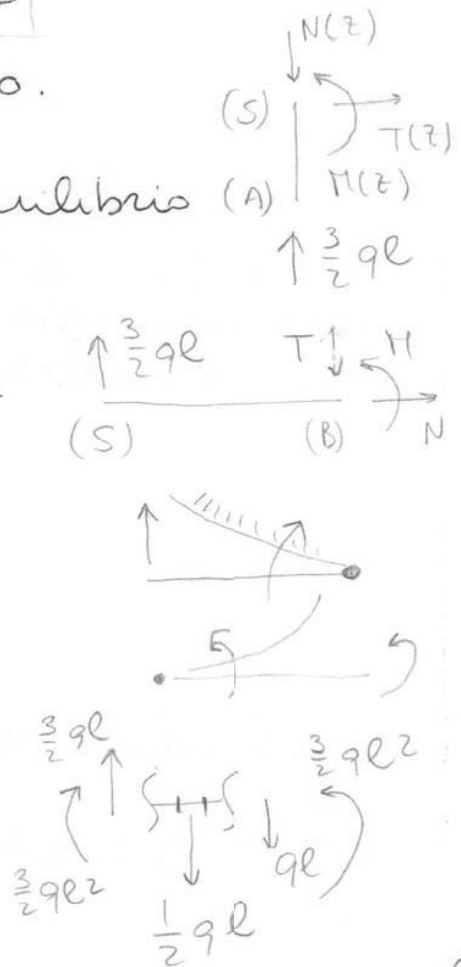 o.
N(z)
(S)
T(z)
uilibrio (A) M(z)
3/2 ql
3/2 ql T M
(S) (B) N
3/2 ql 3/2 ql2
ql
3/2 ql2
1/2 ql